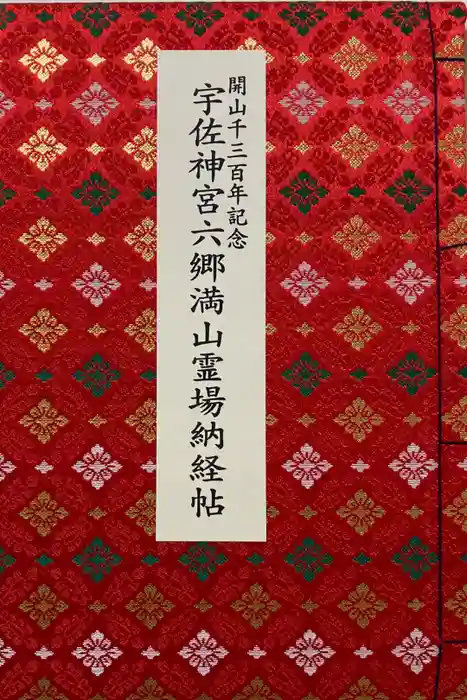 開山千三百年記念
宇佐神宮六郷満山霊場納経帖